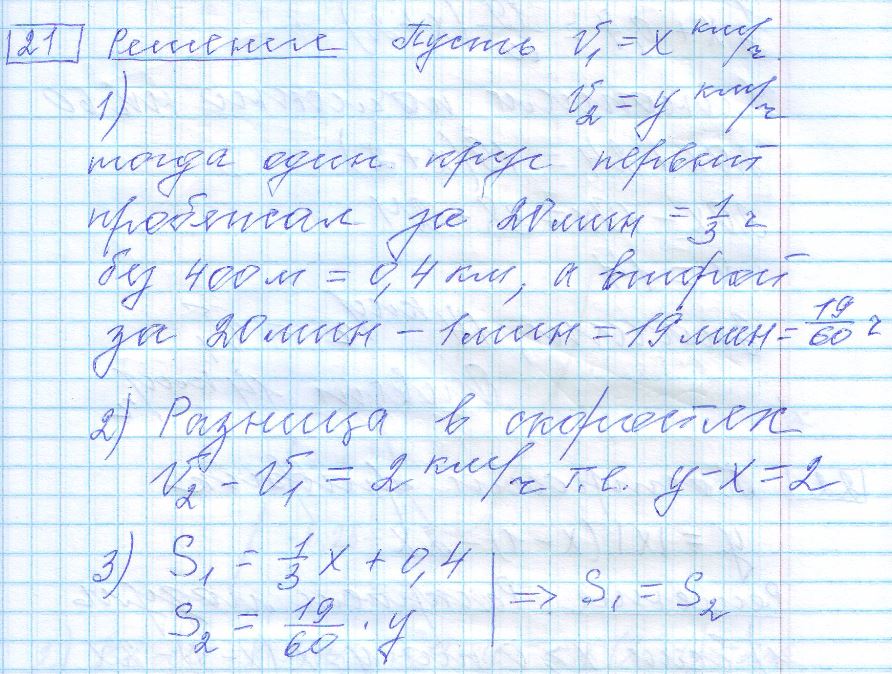 21 Решение Пусть V₁ = x км/ч
1) V₂ = y км/ч
тогда один круг первый
пробежал за 20 мин = 1/3 ч
без 400 м = 0,4 км, а второй
за 20 мин – 1 мин = 19 мин = 19/60 ч
2) Разница в скоростях
V₂ – V₁ = 2 км/ч т.е. y – x = 2
3) S₁ = 1/3 x + 0,4 | ⇒ S₁ = S₂
S₂ = 19/60 · y